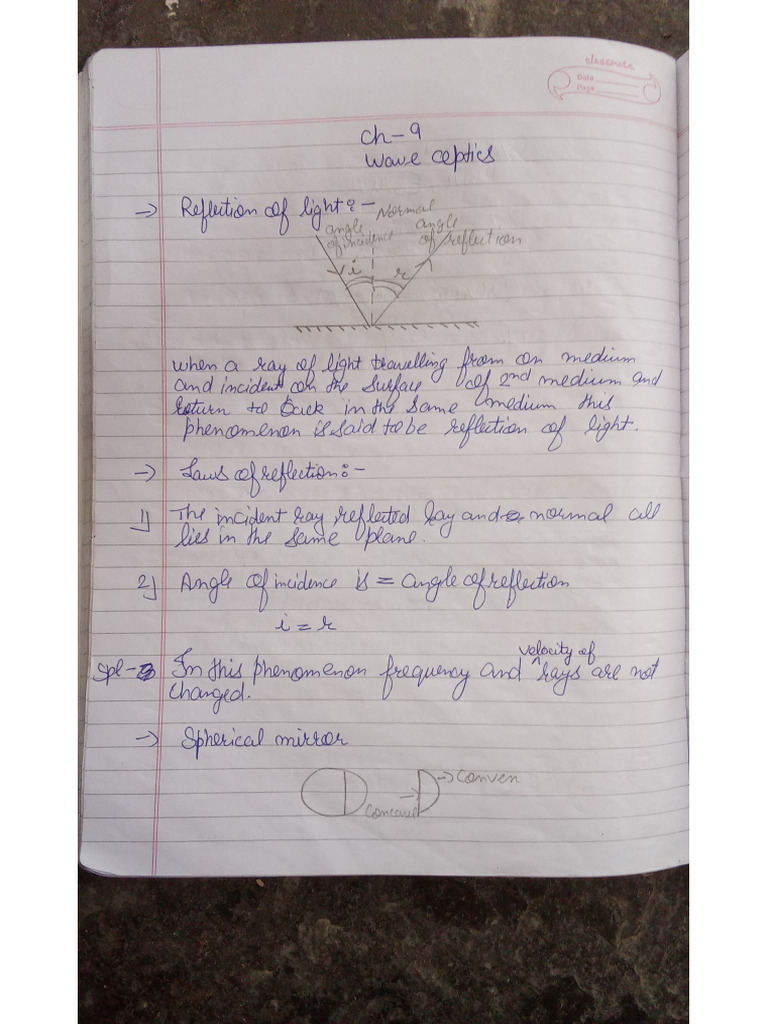 classmate
Date
Page
Ch-9
Wave Optics
→ Reflection of light :-
Normal
angle of incidence
angle of reflection
i
r
When a ray of light travelling from on medium
and incident on the surface of 2nd medium and
return to back in the same medium this
phenomenon is said to be reflection of light.
→ Laws of reflection :-
1) The incident ray, reflected ray and normal all
lies in the same plane.
2) Angle of incidence is = angle of reflection
i = r
Spl- In this phenomenon frequency and velocity of rays are not
changed.
→ Spherical mirror
→ Conven
Concave